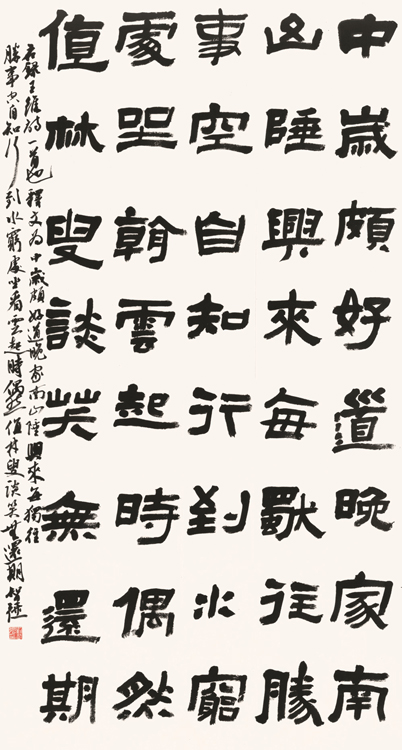 中歲頗好道晚家南
山陲興來每獨往勝
事空自知行到水窮
處坐看雲起時偶然
值林叟談笑無還期
右錄王維詩一首也釋文為中歲頗好道晚家南山陲興來每獨往
勝事空自知行到水窮處坐看雲起時偶然值林叟談笑無還期